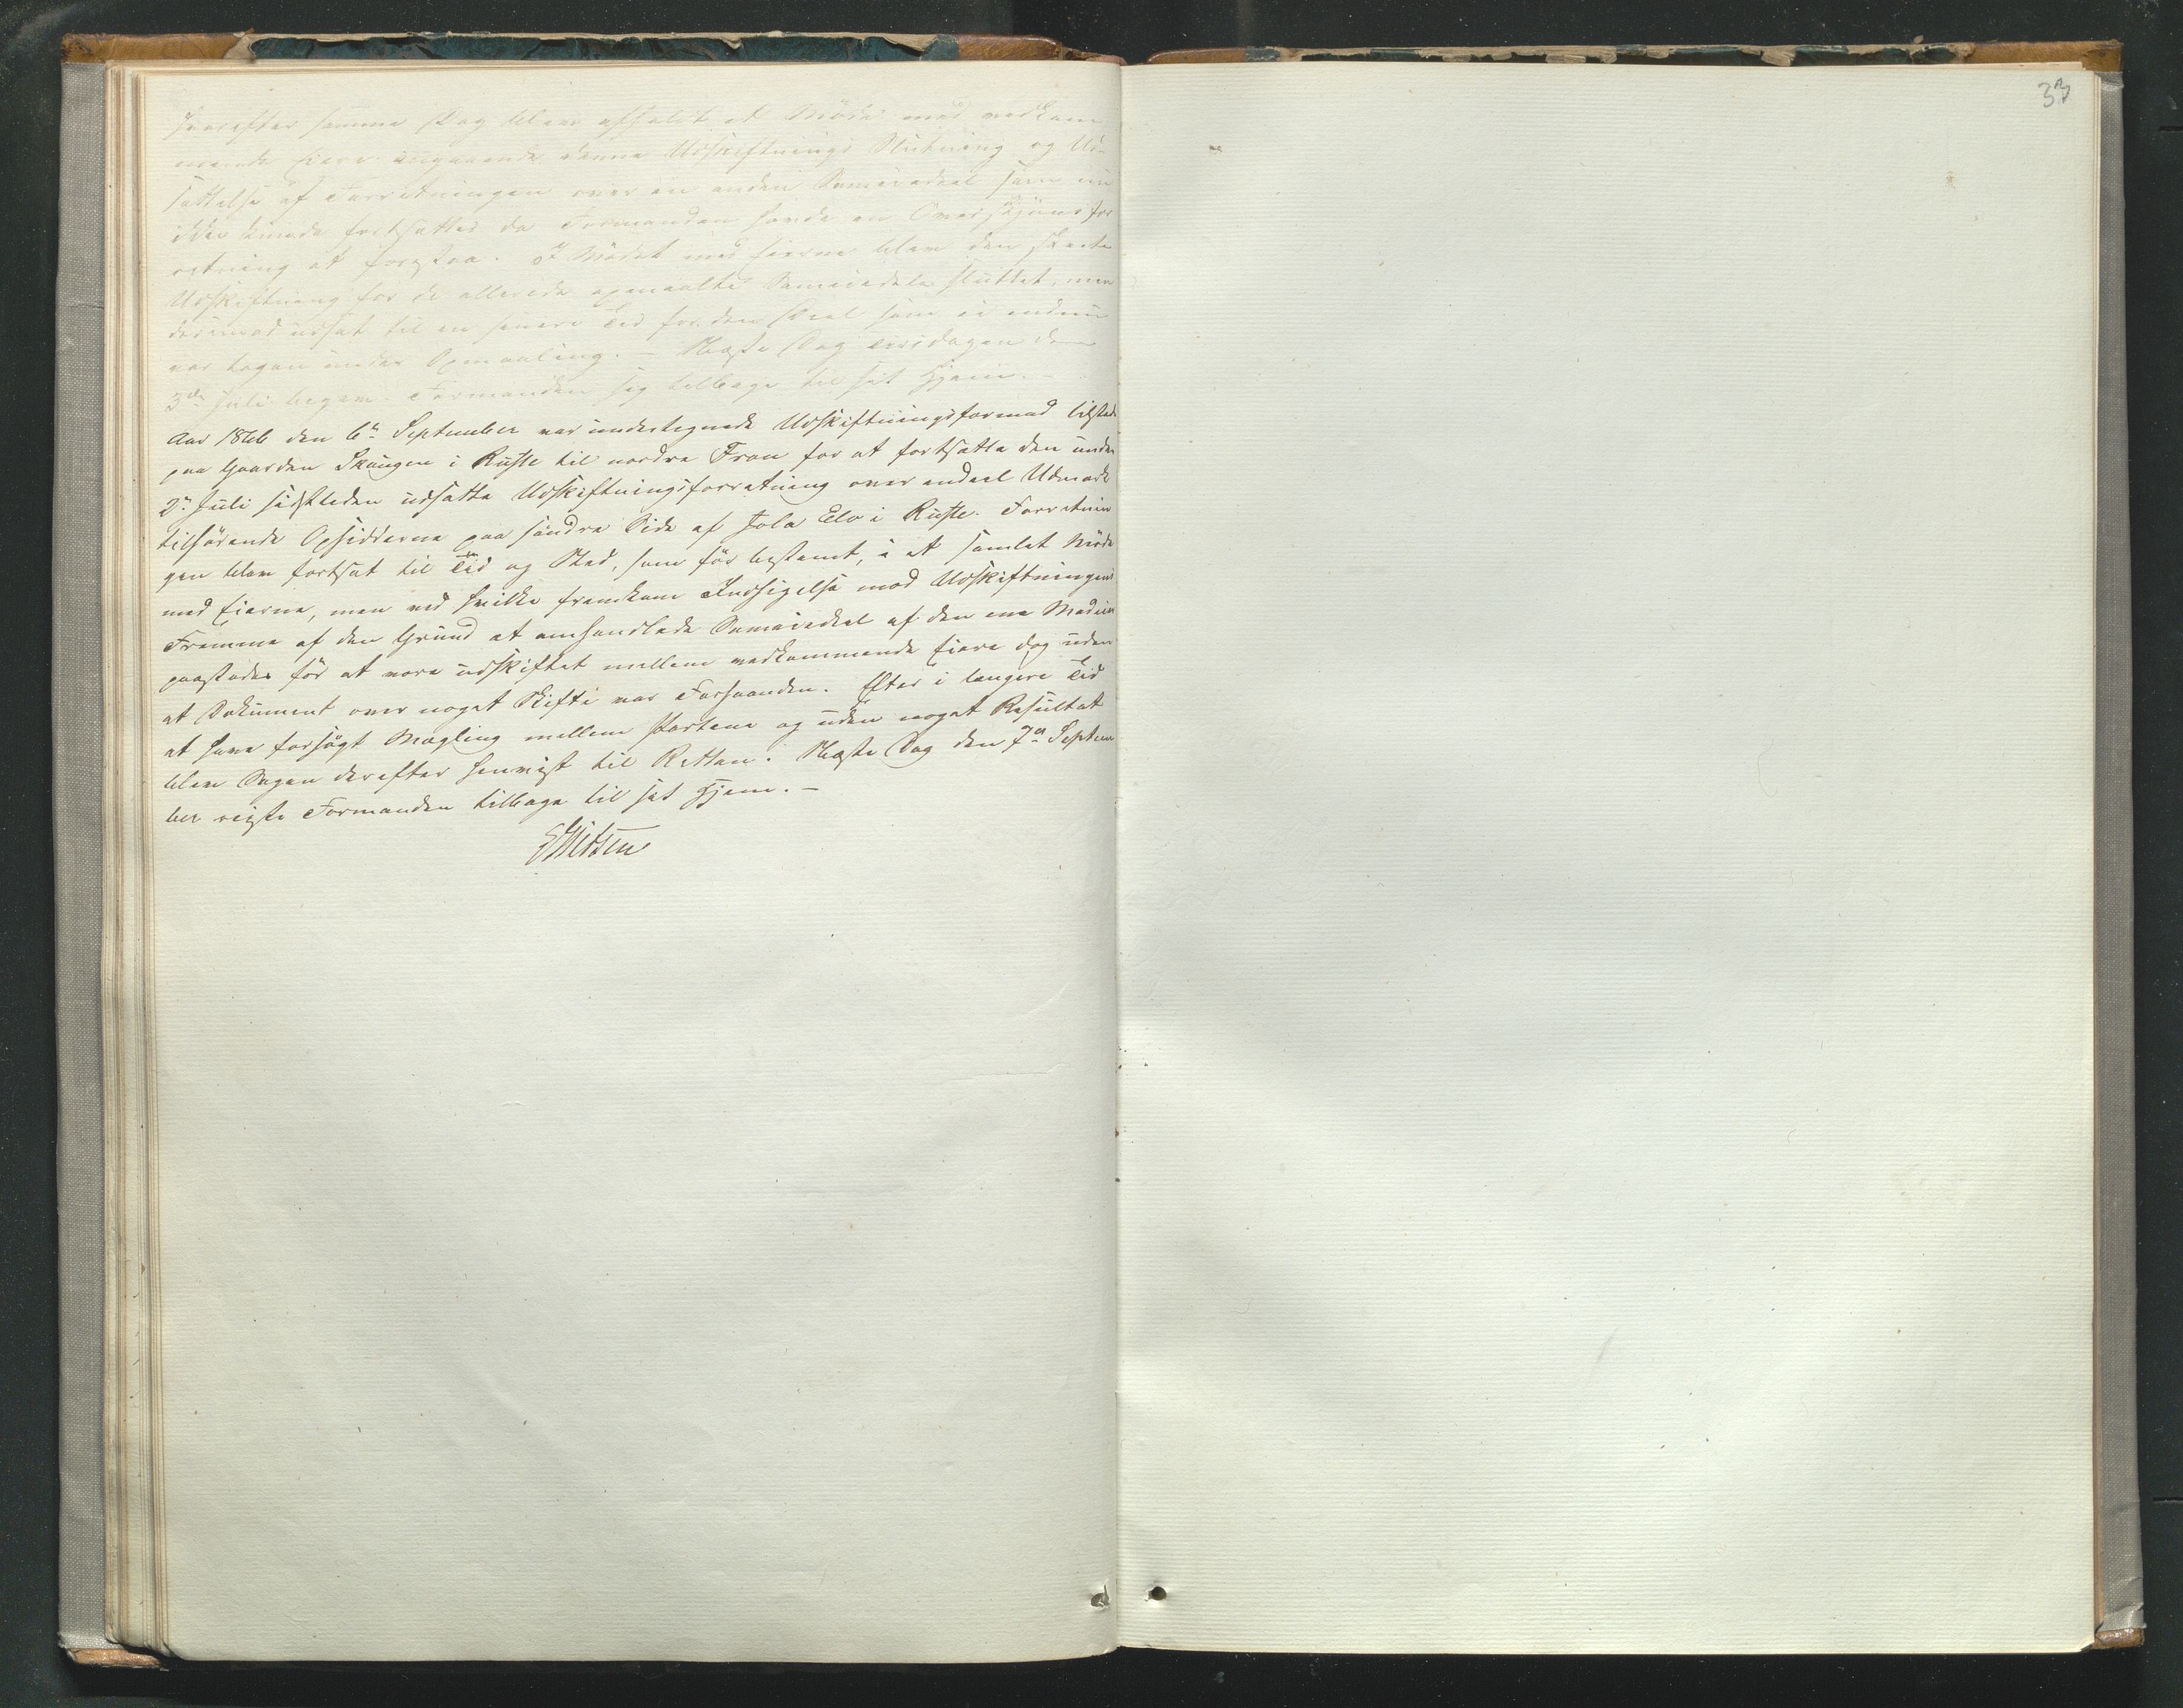 Derefter samme Dag blev afholdt et Möde med vedkom-
mende Eiere angaaende denne Udskiftnings Slutning og Ud-
sættelse af Forretningen over en anden Sameiedeel som nu
ikke kunde fortsættes da Formanden havde en Overskjönsfor
retning at forestaa. I Mödet med Eierne blev den skeete
Udskiftning for de allerede opmaalte Sameiedele sluttet, men
derimod udsat til en senere Tid for den Deel som ei endnu
var tagen under Opmaaling. – Næste Dag Tirsdagen den
3die Juli begav Formanden sig tilbage til sit Hjem. –
Aar 1866 den 6te September var undertegnede Udskiftningsformand tilstede
paa Gaarden Skaugen i Ruste til nordre Fron for at fortsætte den under
2den Juli sidstleden udsatte Udskiftningsforretning over endeel Udmark
tilhörende Opsidderne paa söndre Side af Jola Elv i Ruste. Forretnin
gen blev fortsat til Tid og Sted, som för bestemt, i et samlet Möde
med Eierne, men ved hvilke fremkom Indsigelse mod Udskiftningens
Fremme af den Grund at omhandlede Sameiedeel af den ene
paastodes för at være udskiftet mellem vedkommende Eiere dog uden
at Dokument over noget Skifte var Forhaanden. Efter i længere Tid
at have forsögt Mægling mellem Partene og uden noget Resultat
blev Sagen derefter henvist til Retten. Næste Dag den 7de Septem
ber reiste Formanden tilbage til sit Hjem. –
33